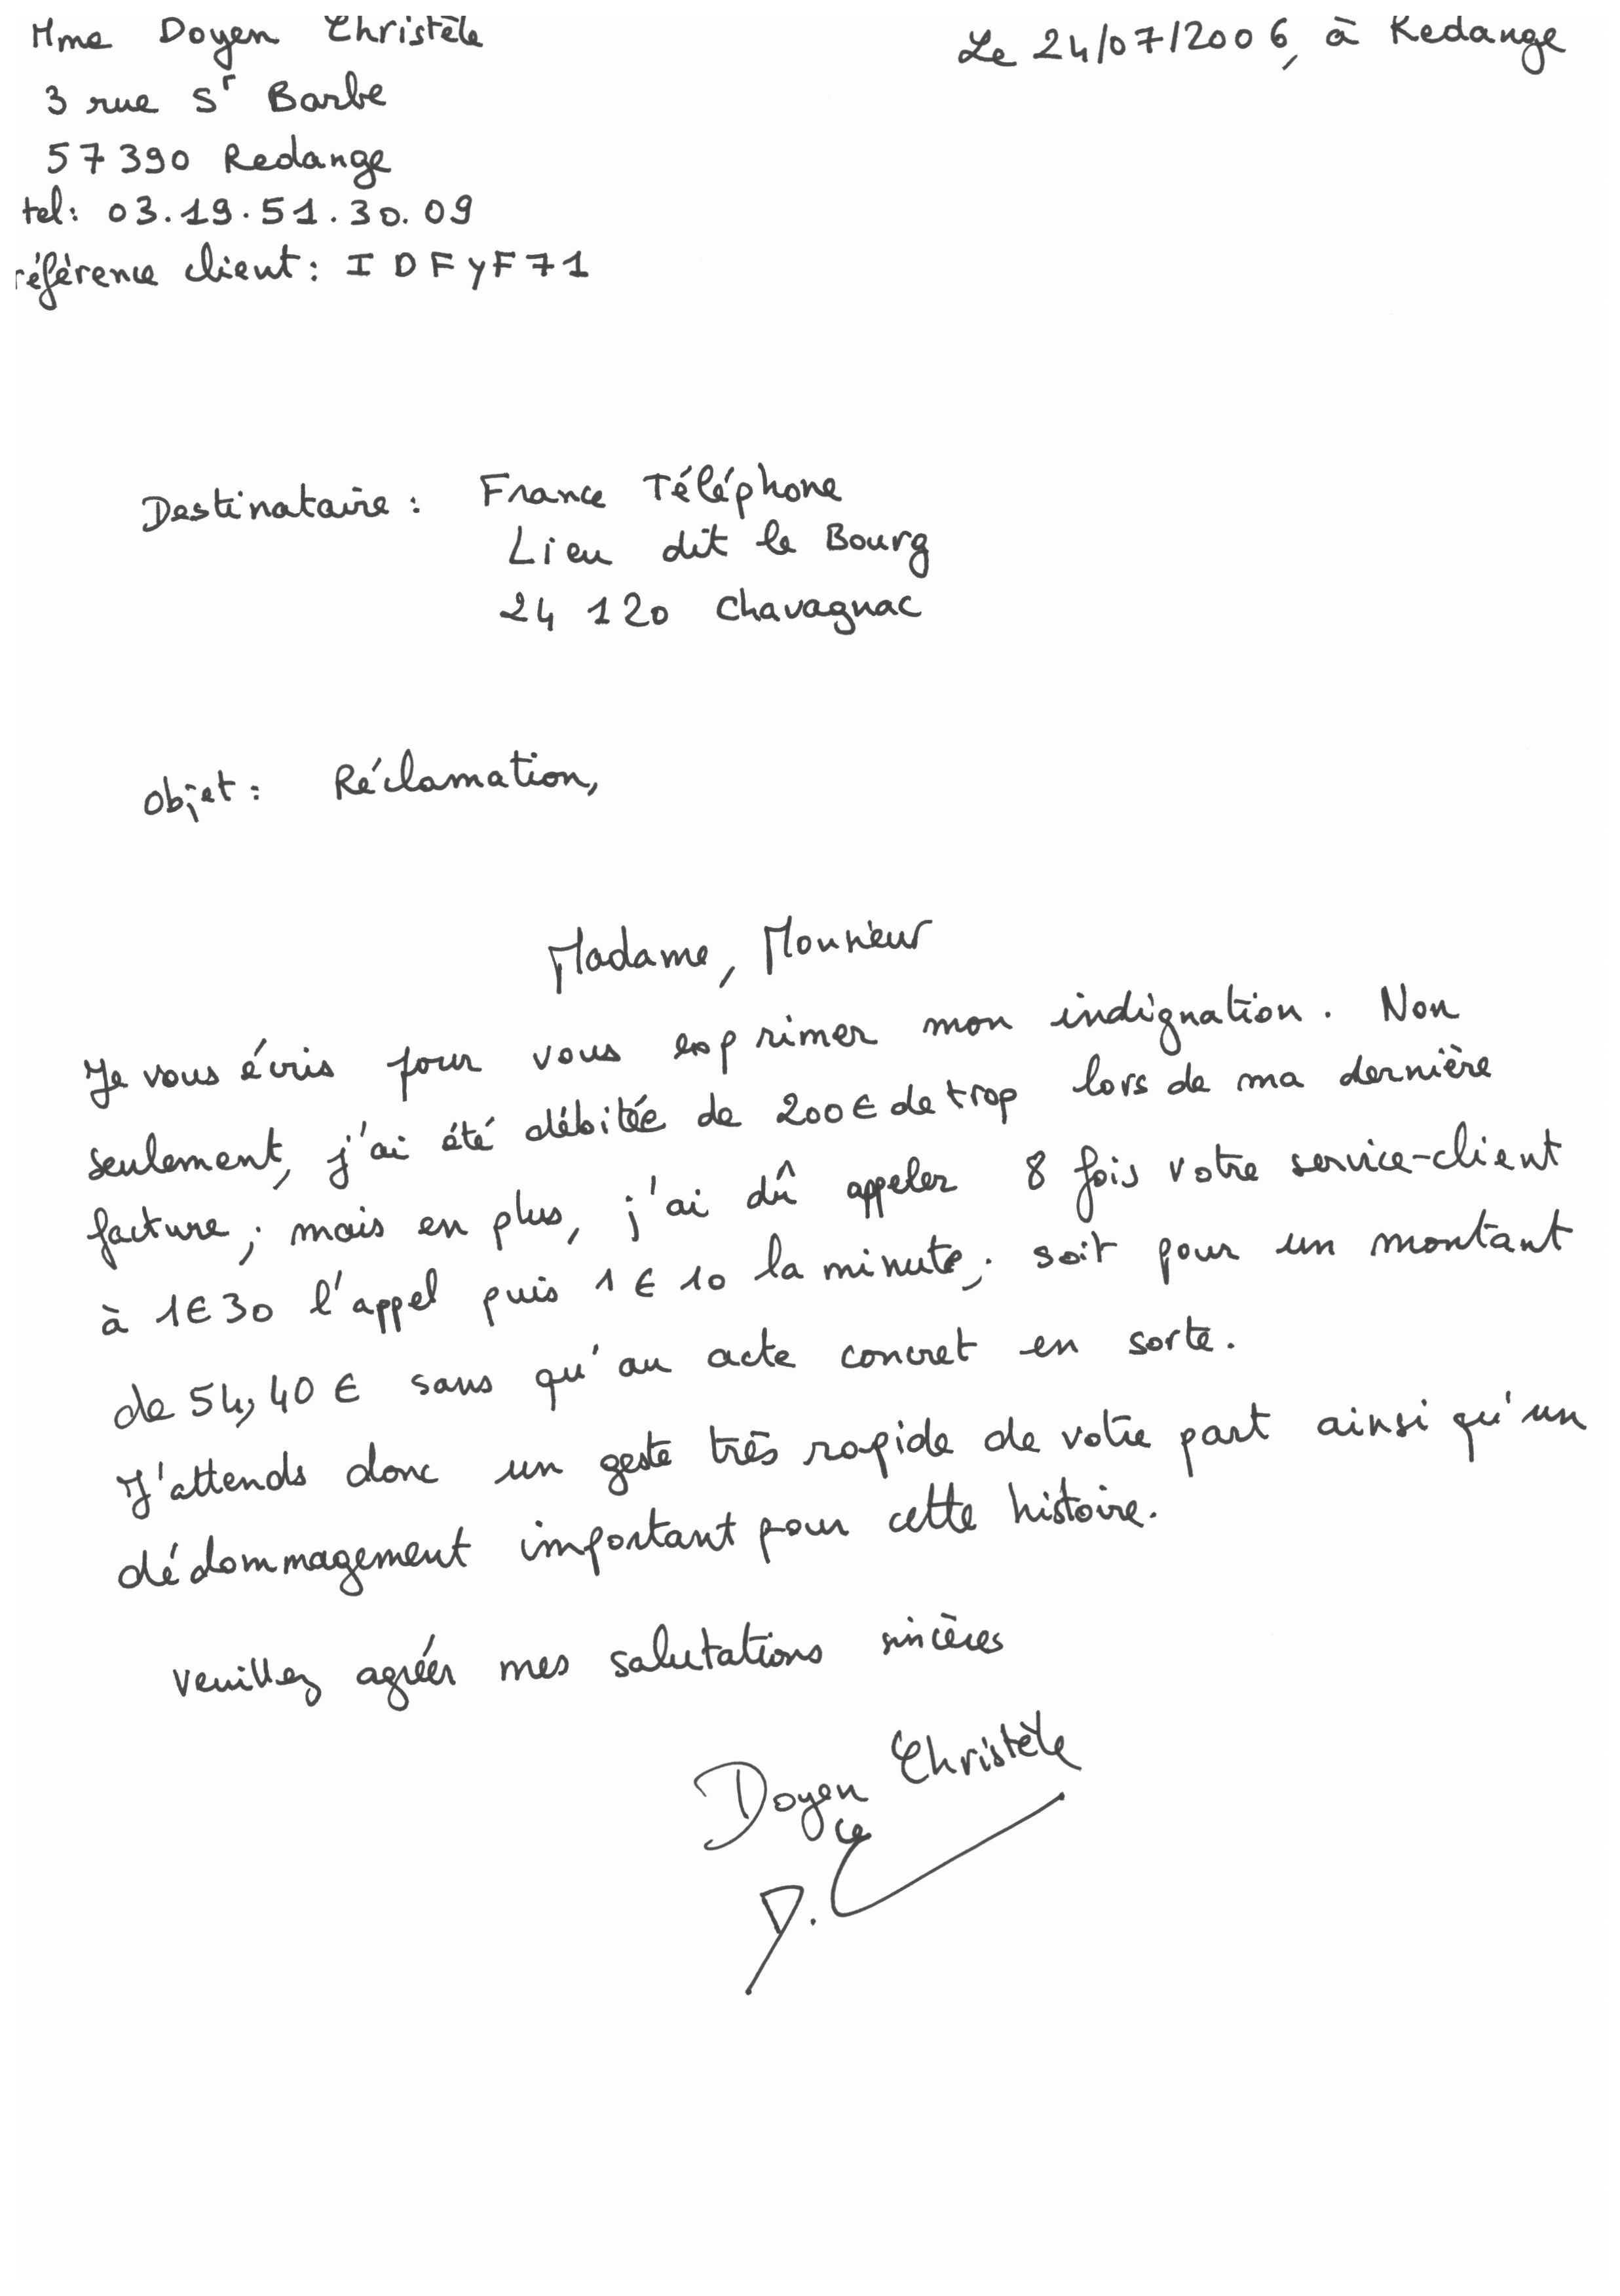 Mme Doyen Christèle
Le 24/07/2006, à Redange
3 rue St Barbe
57390 Redange
tel: 03.19.51.30.09
référence client: IDFYF71
Destinataire: France Téléphone
Lieu dit le Bourg
24 120 Chavagnac
Objet: Réclamation,
Madame, Monsieur
Je vous écris pour vous exprimer mon indignation. Non
seulement, j'ai été débitée de 200€ de trop lors de ma dernière
facture; mais en plus, j'ai dû appeler 8 fois votre service-client
à 1€30 l'appel puis 1€10 la minute; soit pour un montant
de 54,40€ sans qu'au acte concret en sorte.
J'attends donc un geste très rapide de votre part ainsi qu'un
dédommagement important pour cette histoire.
Veuillez agréér mes salutations sincères
Doyen Christèle
D.